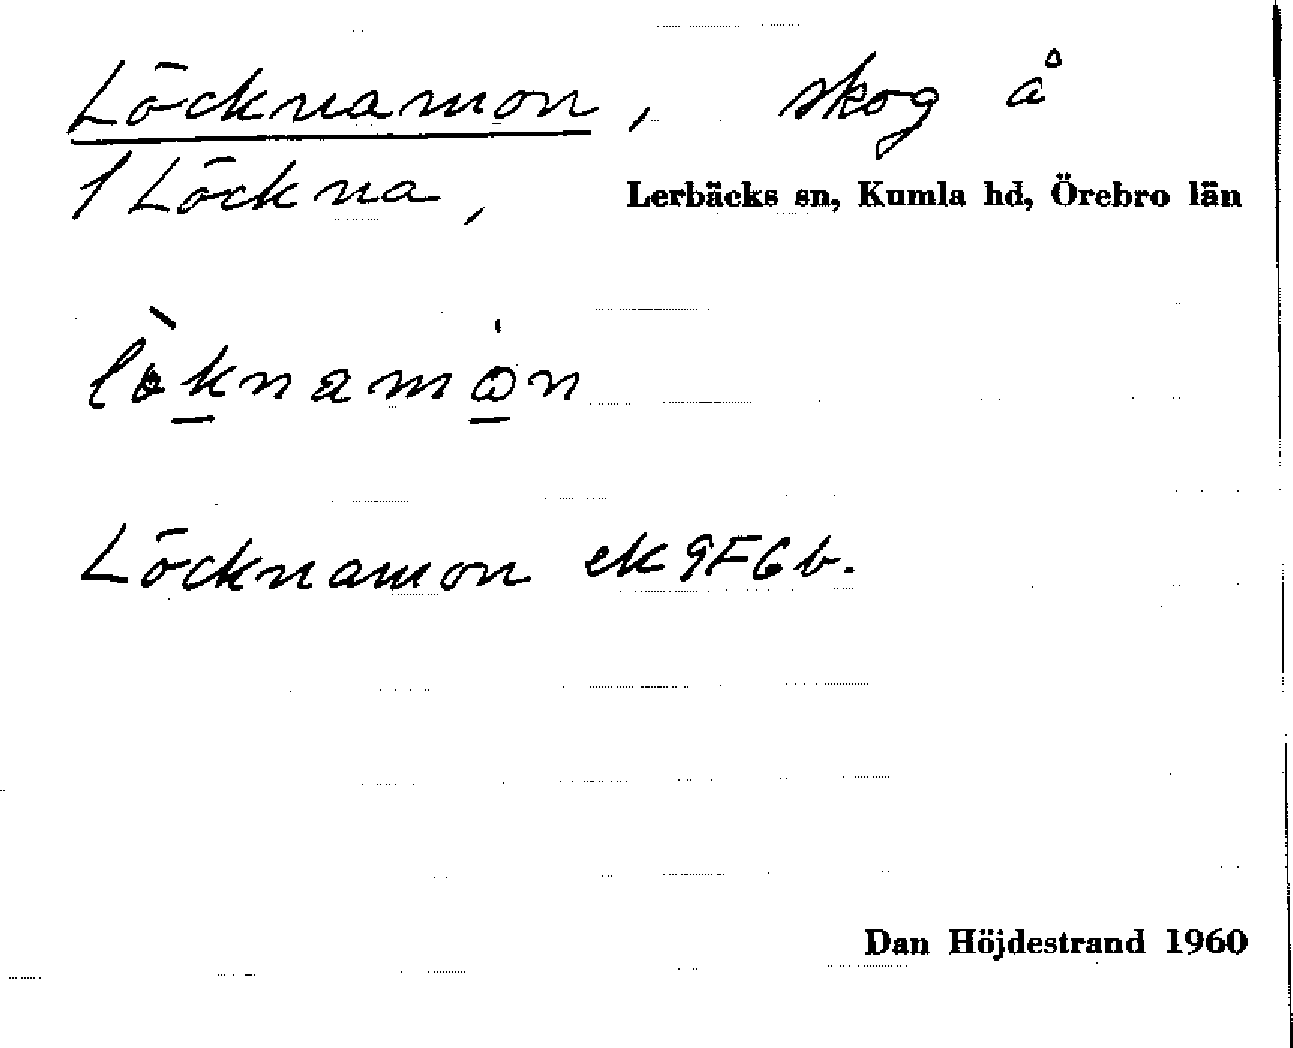 Löcknamon, skog å
1 Löckna, Lerbäcks sn, Kumla hd, Örebro län
lò̀knamȯn
Löcknamon ek 9F6b.
Dan Höjdestrand 1960